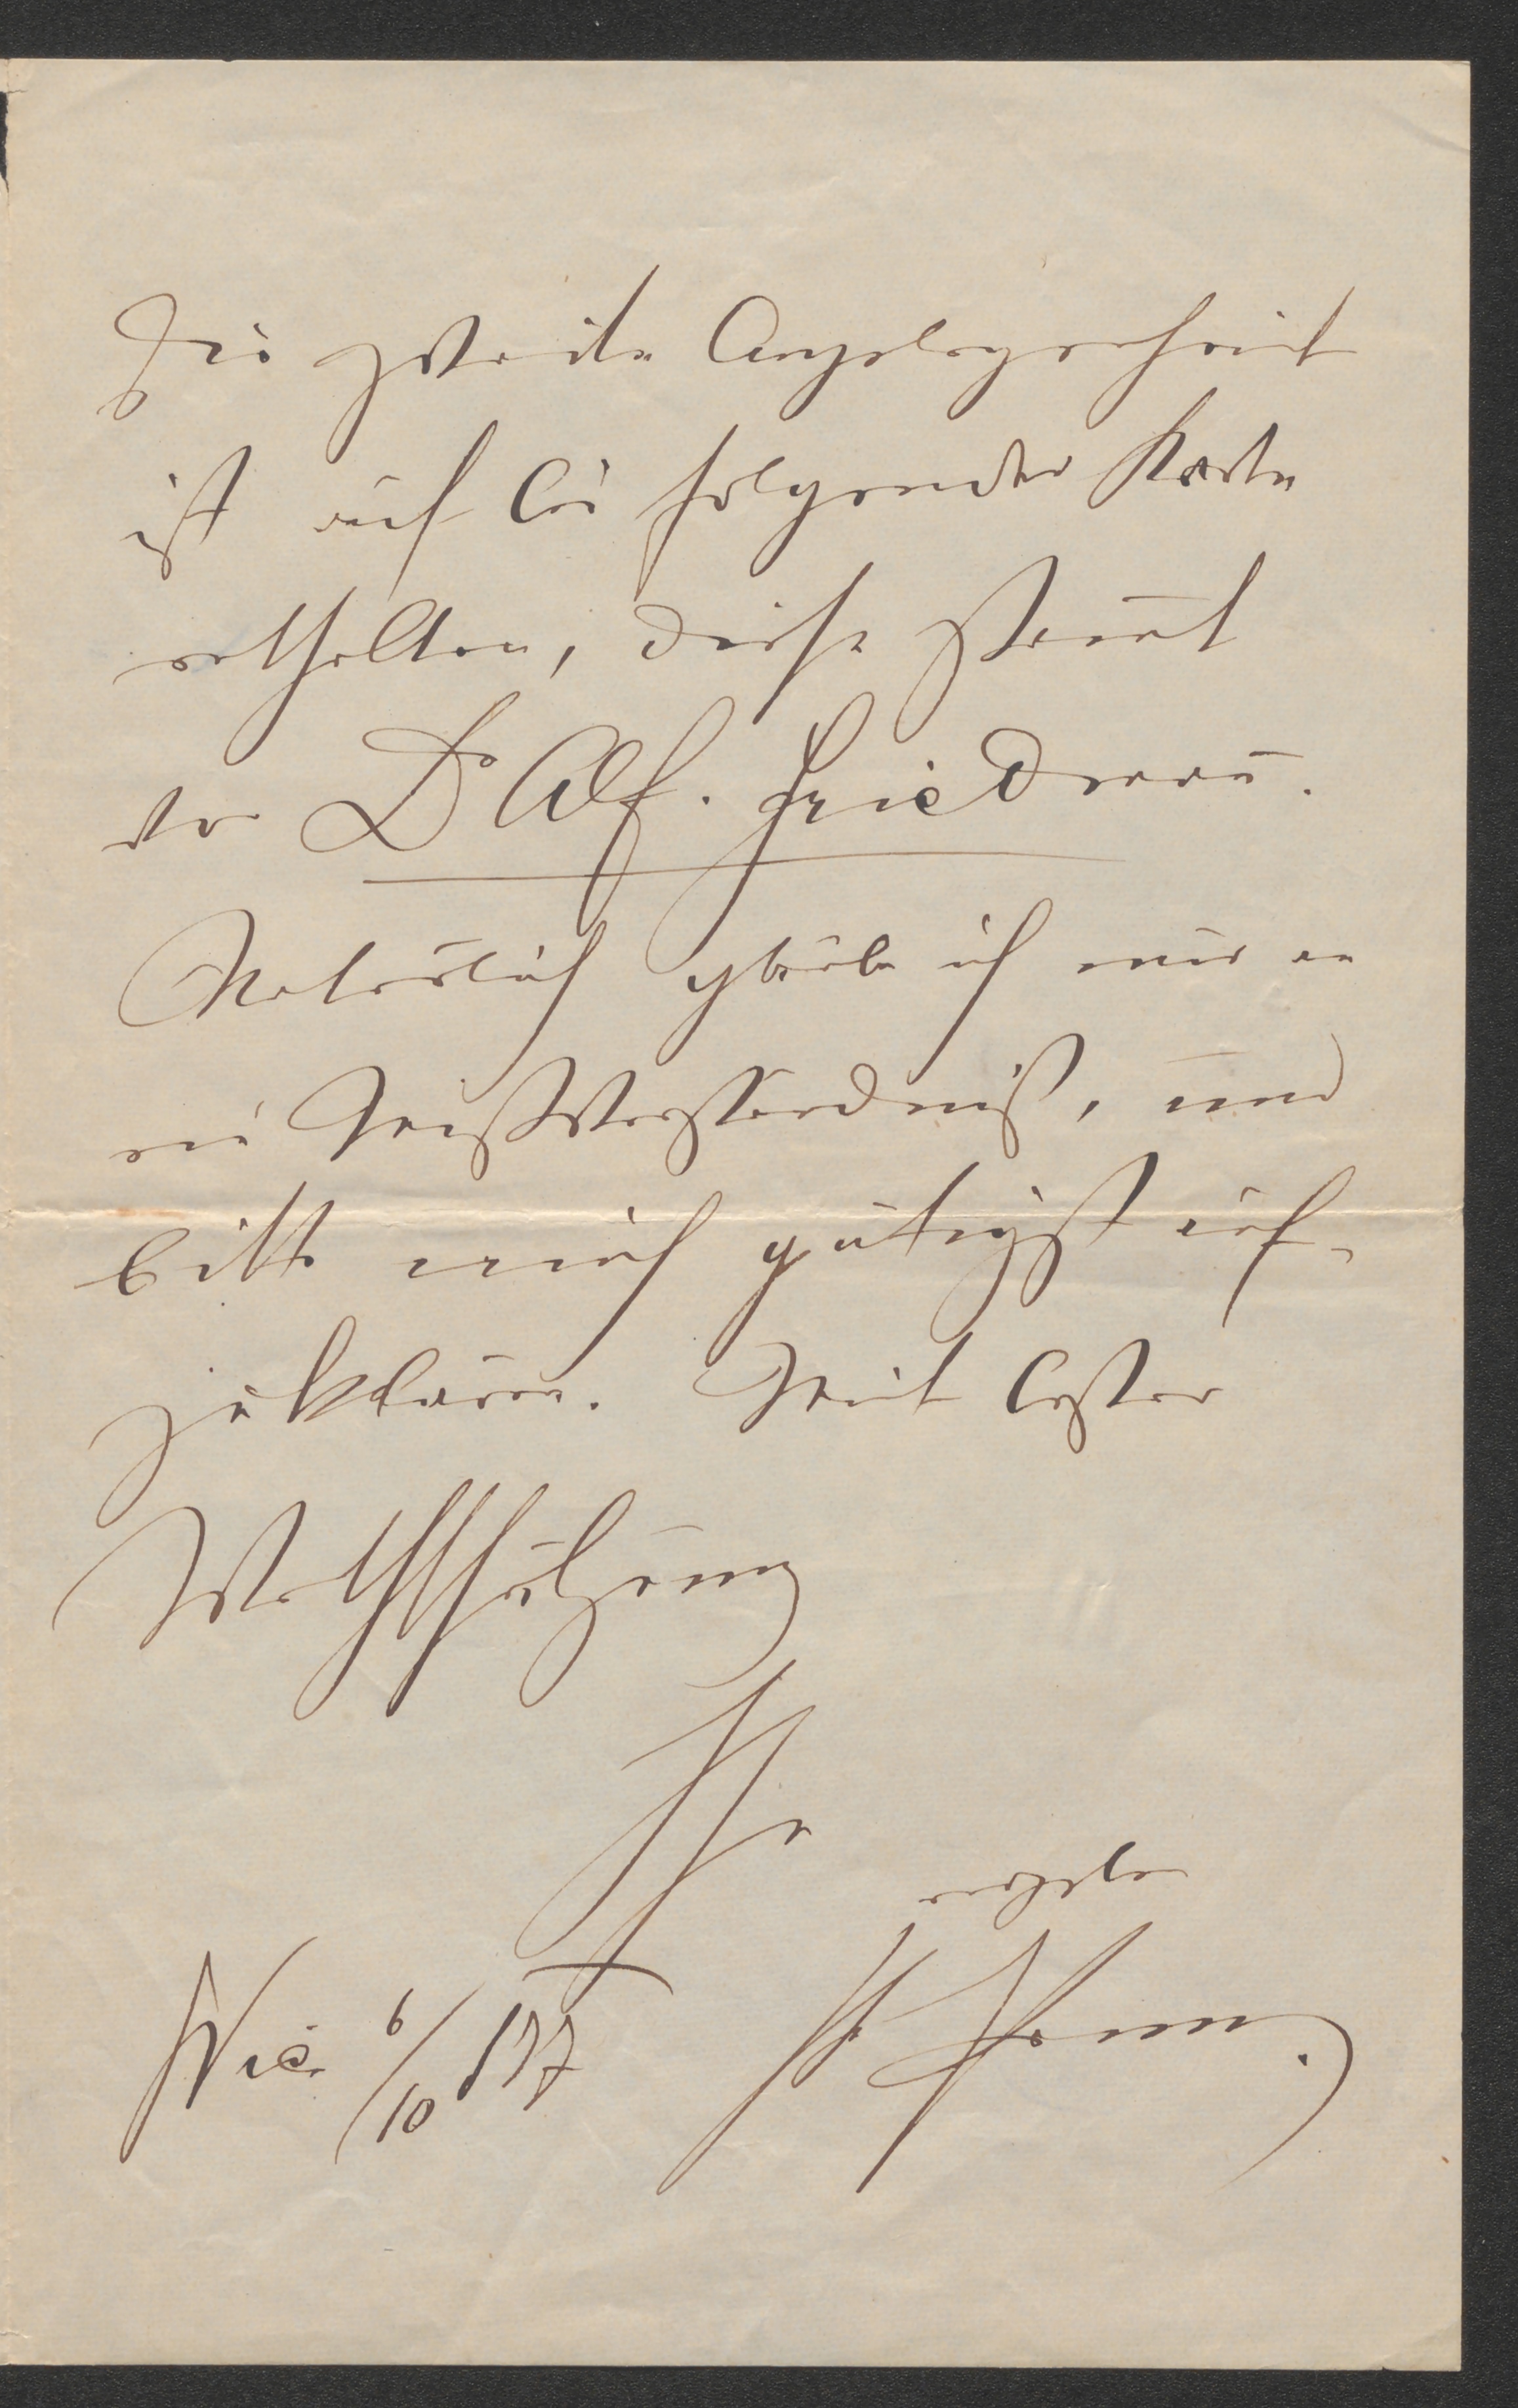 Die zweite Angelegenheit
ist auf bei folgender Karte
enthalten, diese stammt
von Dr Alf. Friedmann.
Natürlich glaube ich nur an
ein Mißverständniß, und
bitte mich gütigst auf-
zuklären. Mit bester
Werthschätzung
Ihr
ergebener
Wien 6/10 877